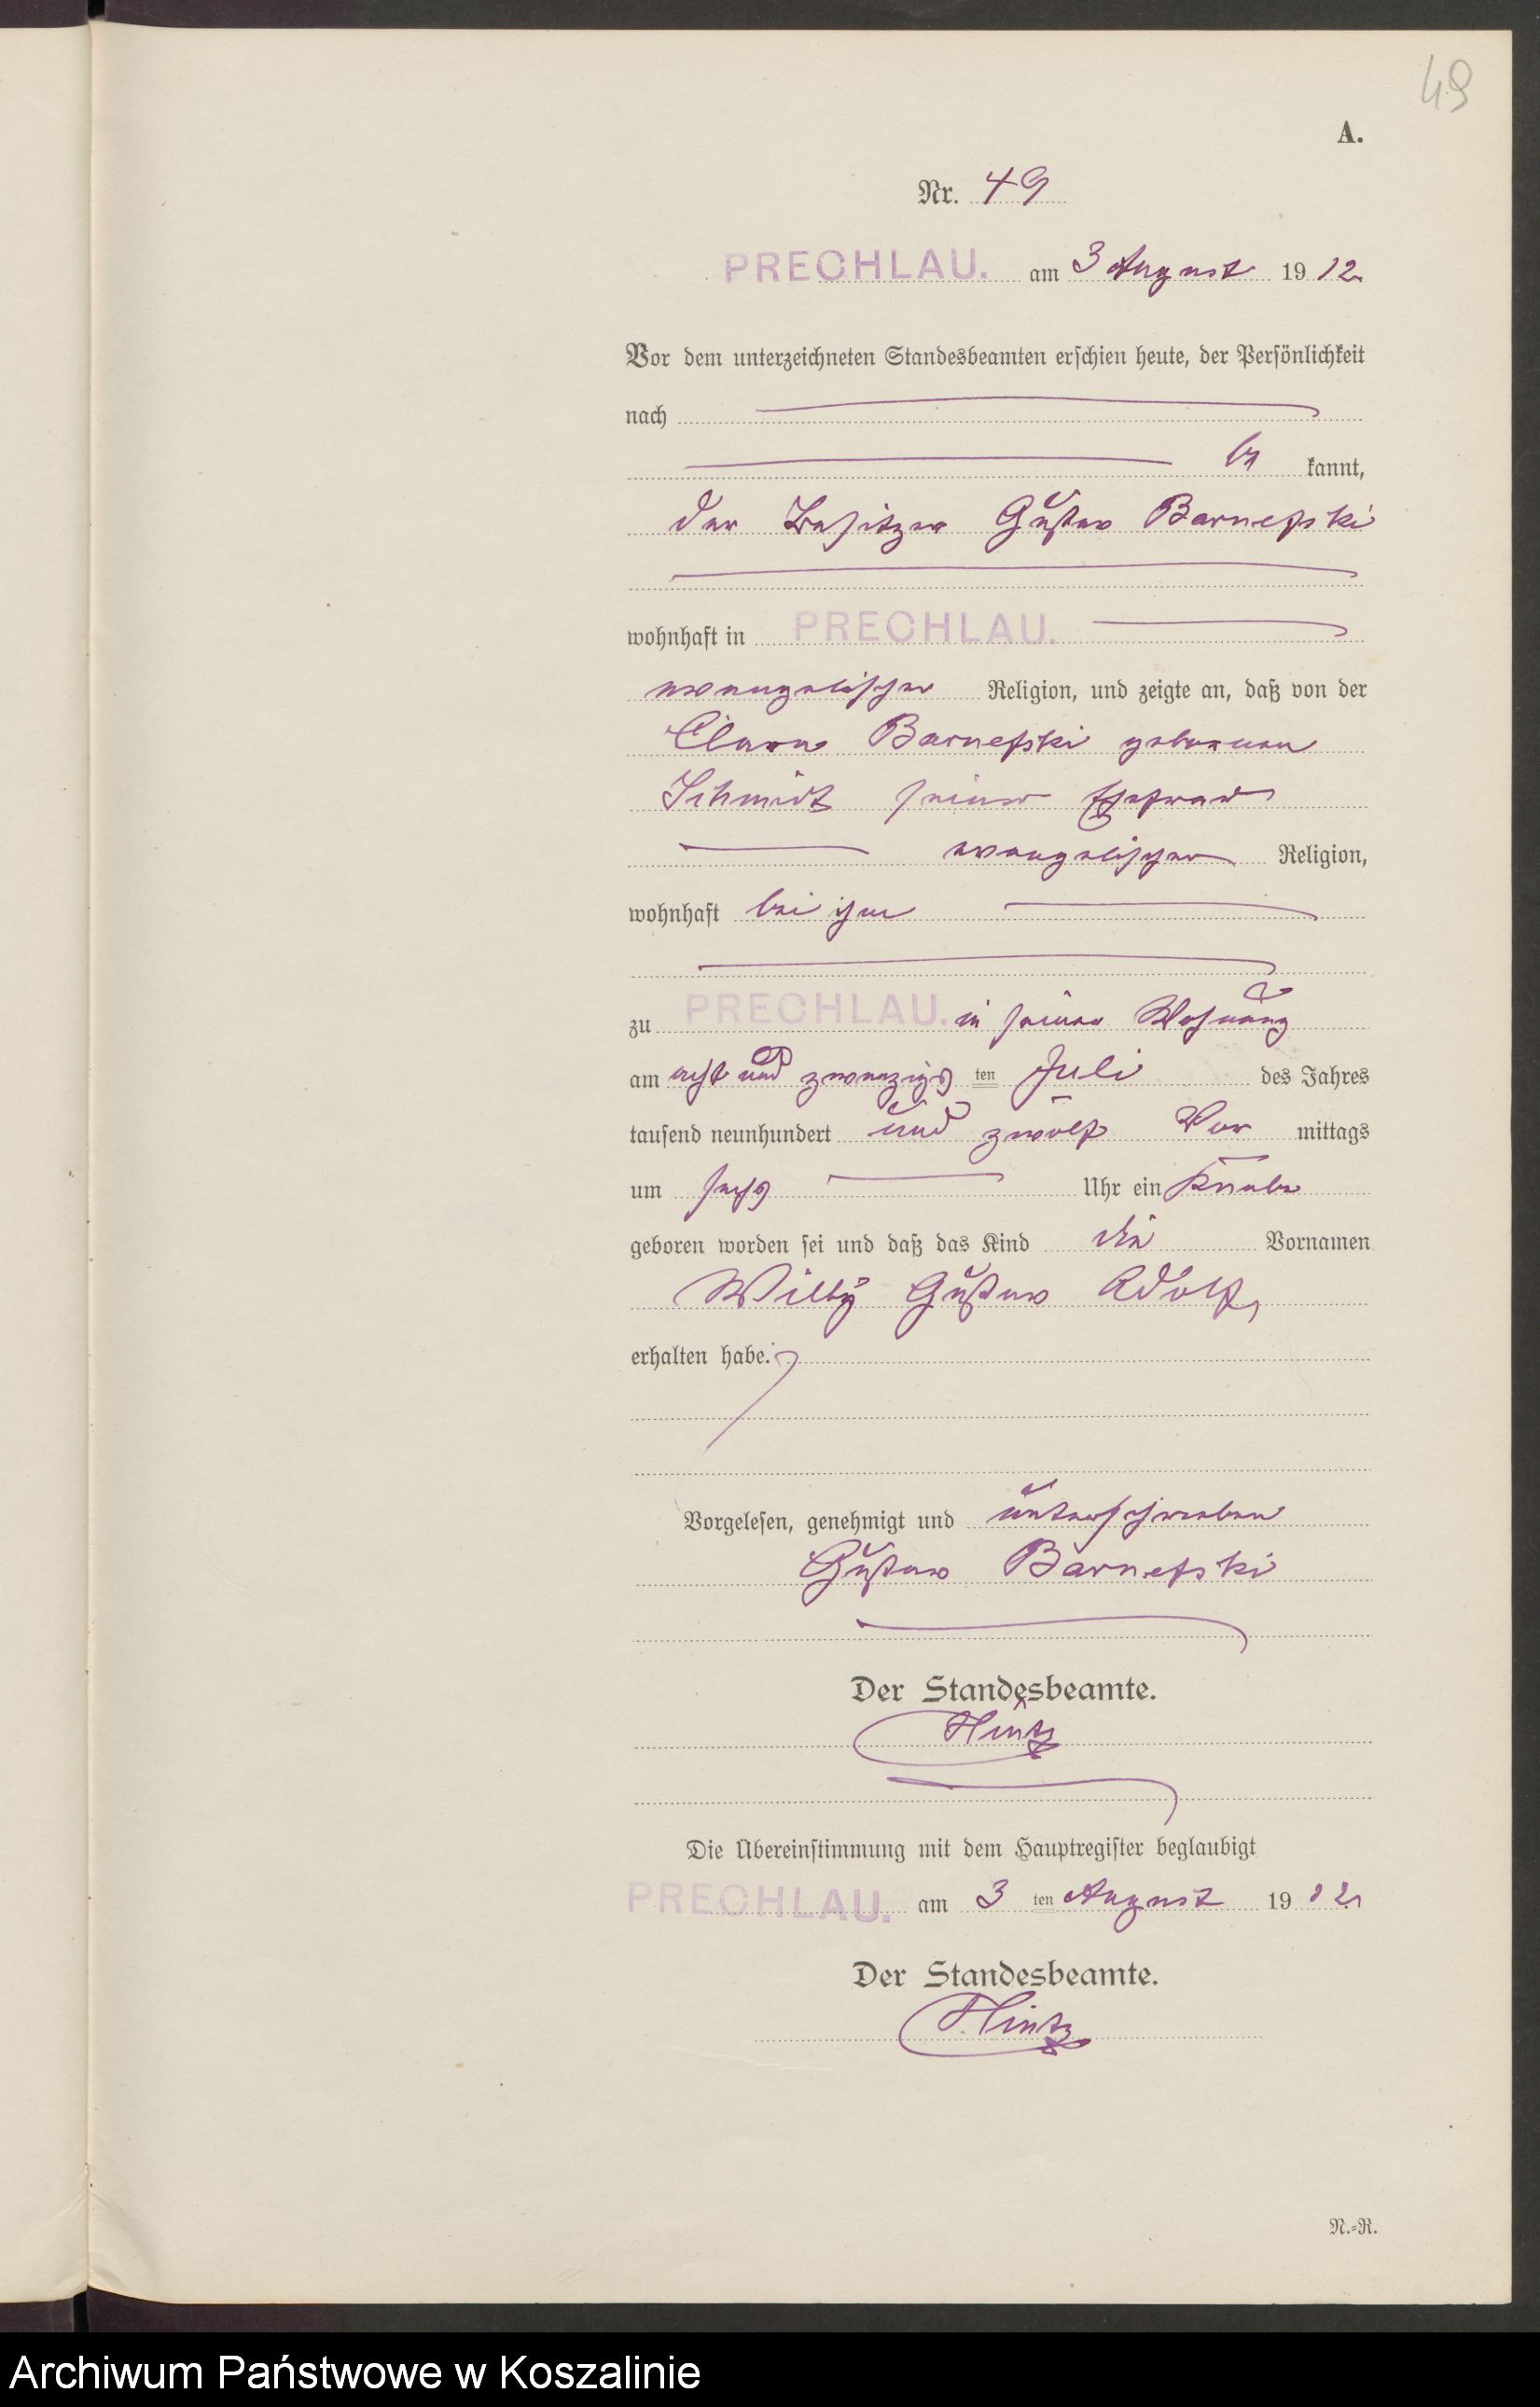 49
A.
Nr. 49
PRECHLAU. am 3 August 1912
Vor dem unterzeichneten Standesbeamten erschien heute, der Persönlichkeit
nach
be kannt,
der Besitzer Gustav Barnefski
wohnhaft in PRECHLAU.
evangelischer Religion, und zeigte an, daß von der
Clara Barnefski geborenen
Schmidt seiner Ehefrau
evangelischer Religion,
wohnhaft bei ihm
zu PRECHLAU. in seiner Wohnung
am acht und zwanzigsten Juli des Jahres
tausend neunhundert und zwölf Vor mittags
um sechs Uhr ein Knabe
geboren worden sei und daß das Kind die Vornamen
Willy Gustav Adolf,
erhalten habe.
Vorgelesen, genehmigt und unterschrieben
Gustav Barnefski
Der Standesbeamte.
Hintz
Die Übereinstimmung mit dem Hauptregister beglaubigt
PRECHLAU. am 3 ten August 1912
Der Standesbeamte.
Hintz
N.=R.
Archiwum Państwowe w Koszalinie